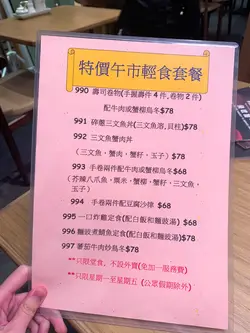 特價午市輕食套餐
990 壽司卷物(手握壽件4件,卷物2件)
配牛肉或蟹柳烏冬$78
991 碎蔥三文魚丼(三文魚溶,貝柱)$78
992 三文魚蟹肉丼
(三文魚,蟹肉,蟹籽,玉子) $78
993 手卷兩件配牛肉或蟹柳烏冬$68
(芥辣八爪魚,粟米,蟹柳,蟹籽,三文魚,
玉子)
994 手卷兩件配豆腐沙律 $68
995 一口炸雞定食(配白飯和麵豉湯) $68
996 麵豉煮鯖魚定食(配白飯和麵豉湯)$78
997 蕃茄牛肉炒烏冬$78
**只限堂食,不設外賣(免加一服務費)
**只限星期一至星期五 (公眾假期除外)